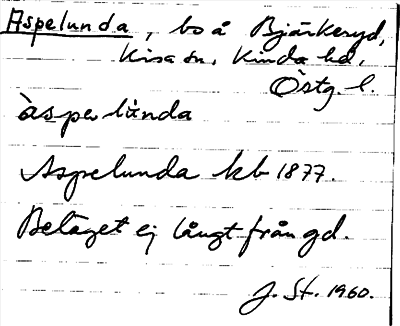 Aspelunda, bo å Bjärkeryd,
Kisa sn, Kinda hd,
Östg. l.
àspelùnda
Aspelunda kb 1877.
Beläget ej långt från gd.
J. St. 1960.